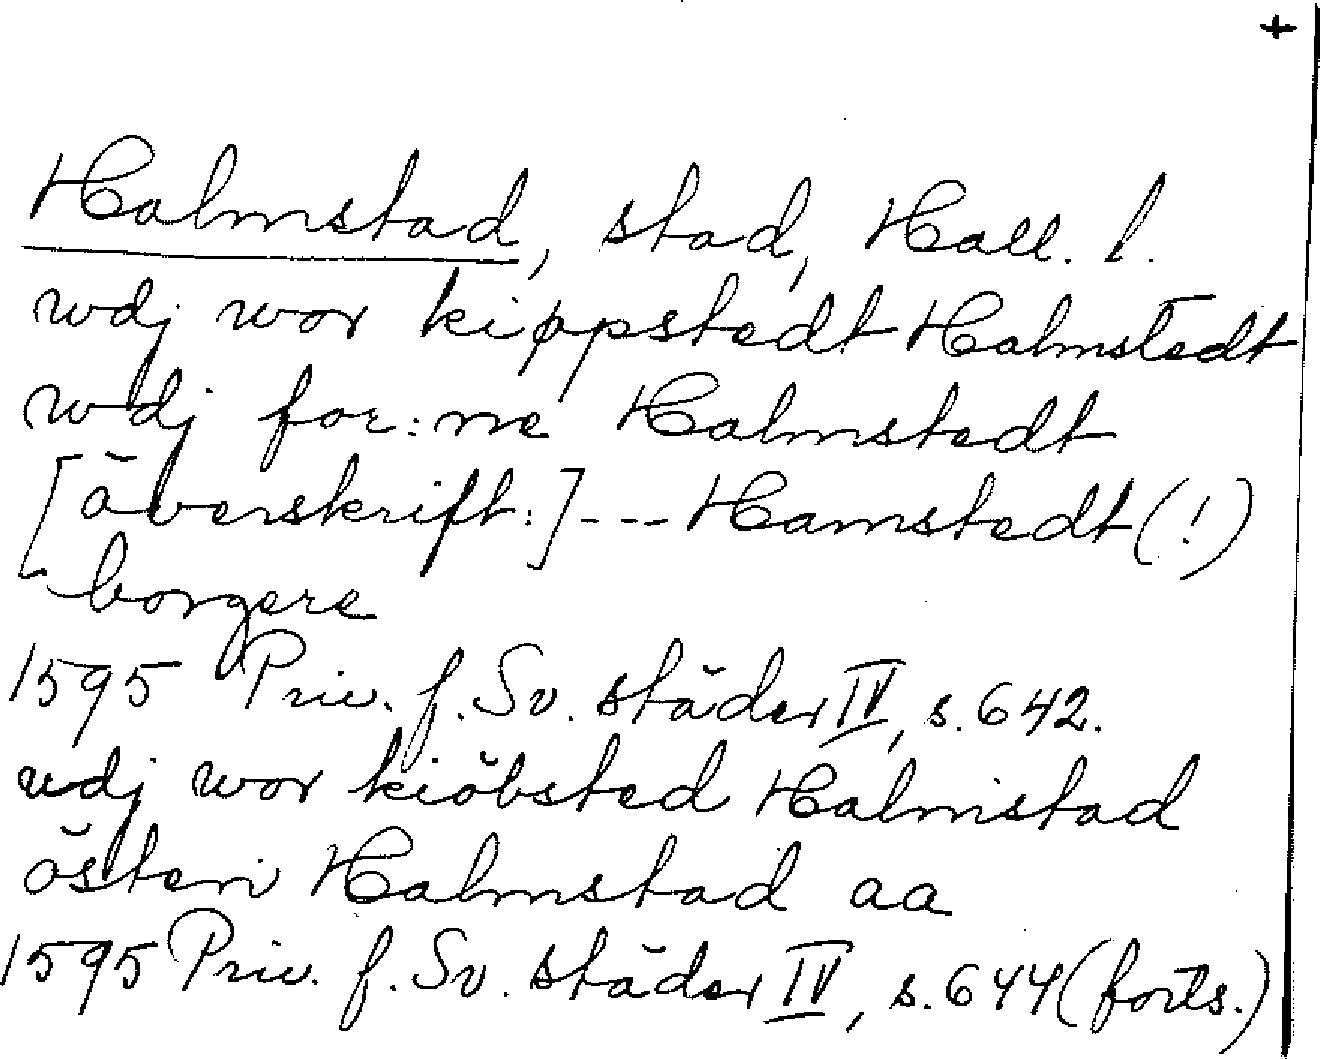 +
Halmstad, stad, Hall. l.
wdj wor kippstedt Halmstedt
wdj for:ne Halmstedt
[överskrift:]--- Hamstedt(!)
borgere
1595 Priv. f. Sv. städer IV, s. 642.
udj wor kiöbsted Halmstad
östen Halmstad aa
1595 Priv. f. Sv. städer IV, s. 644 (forts.)